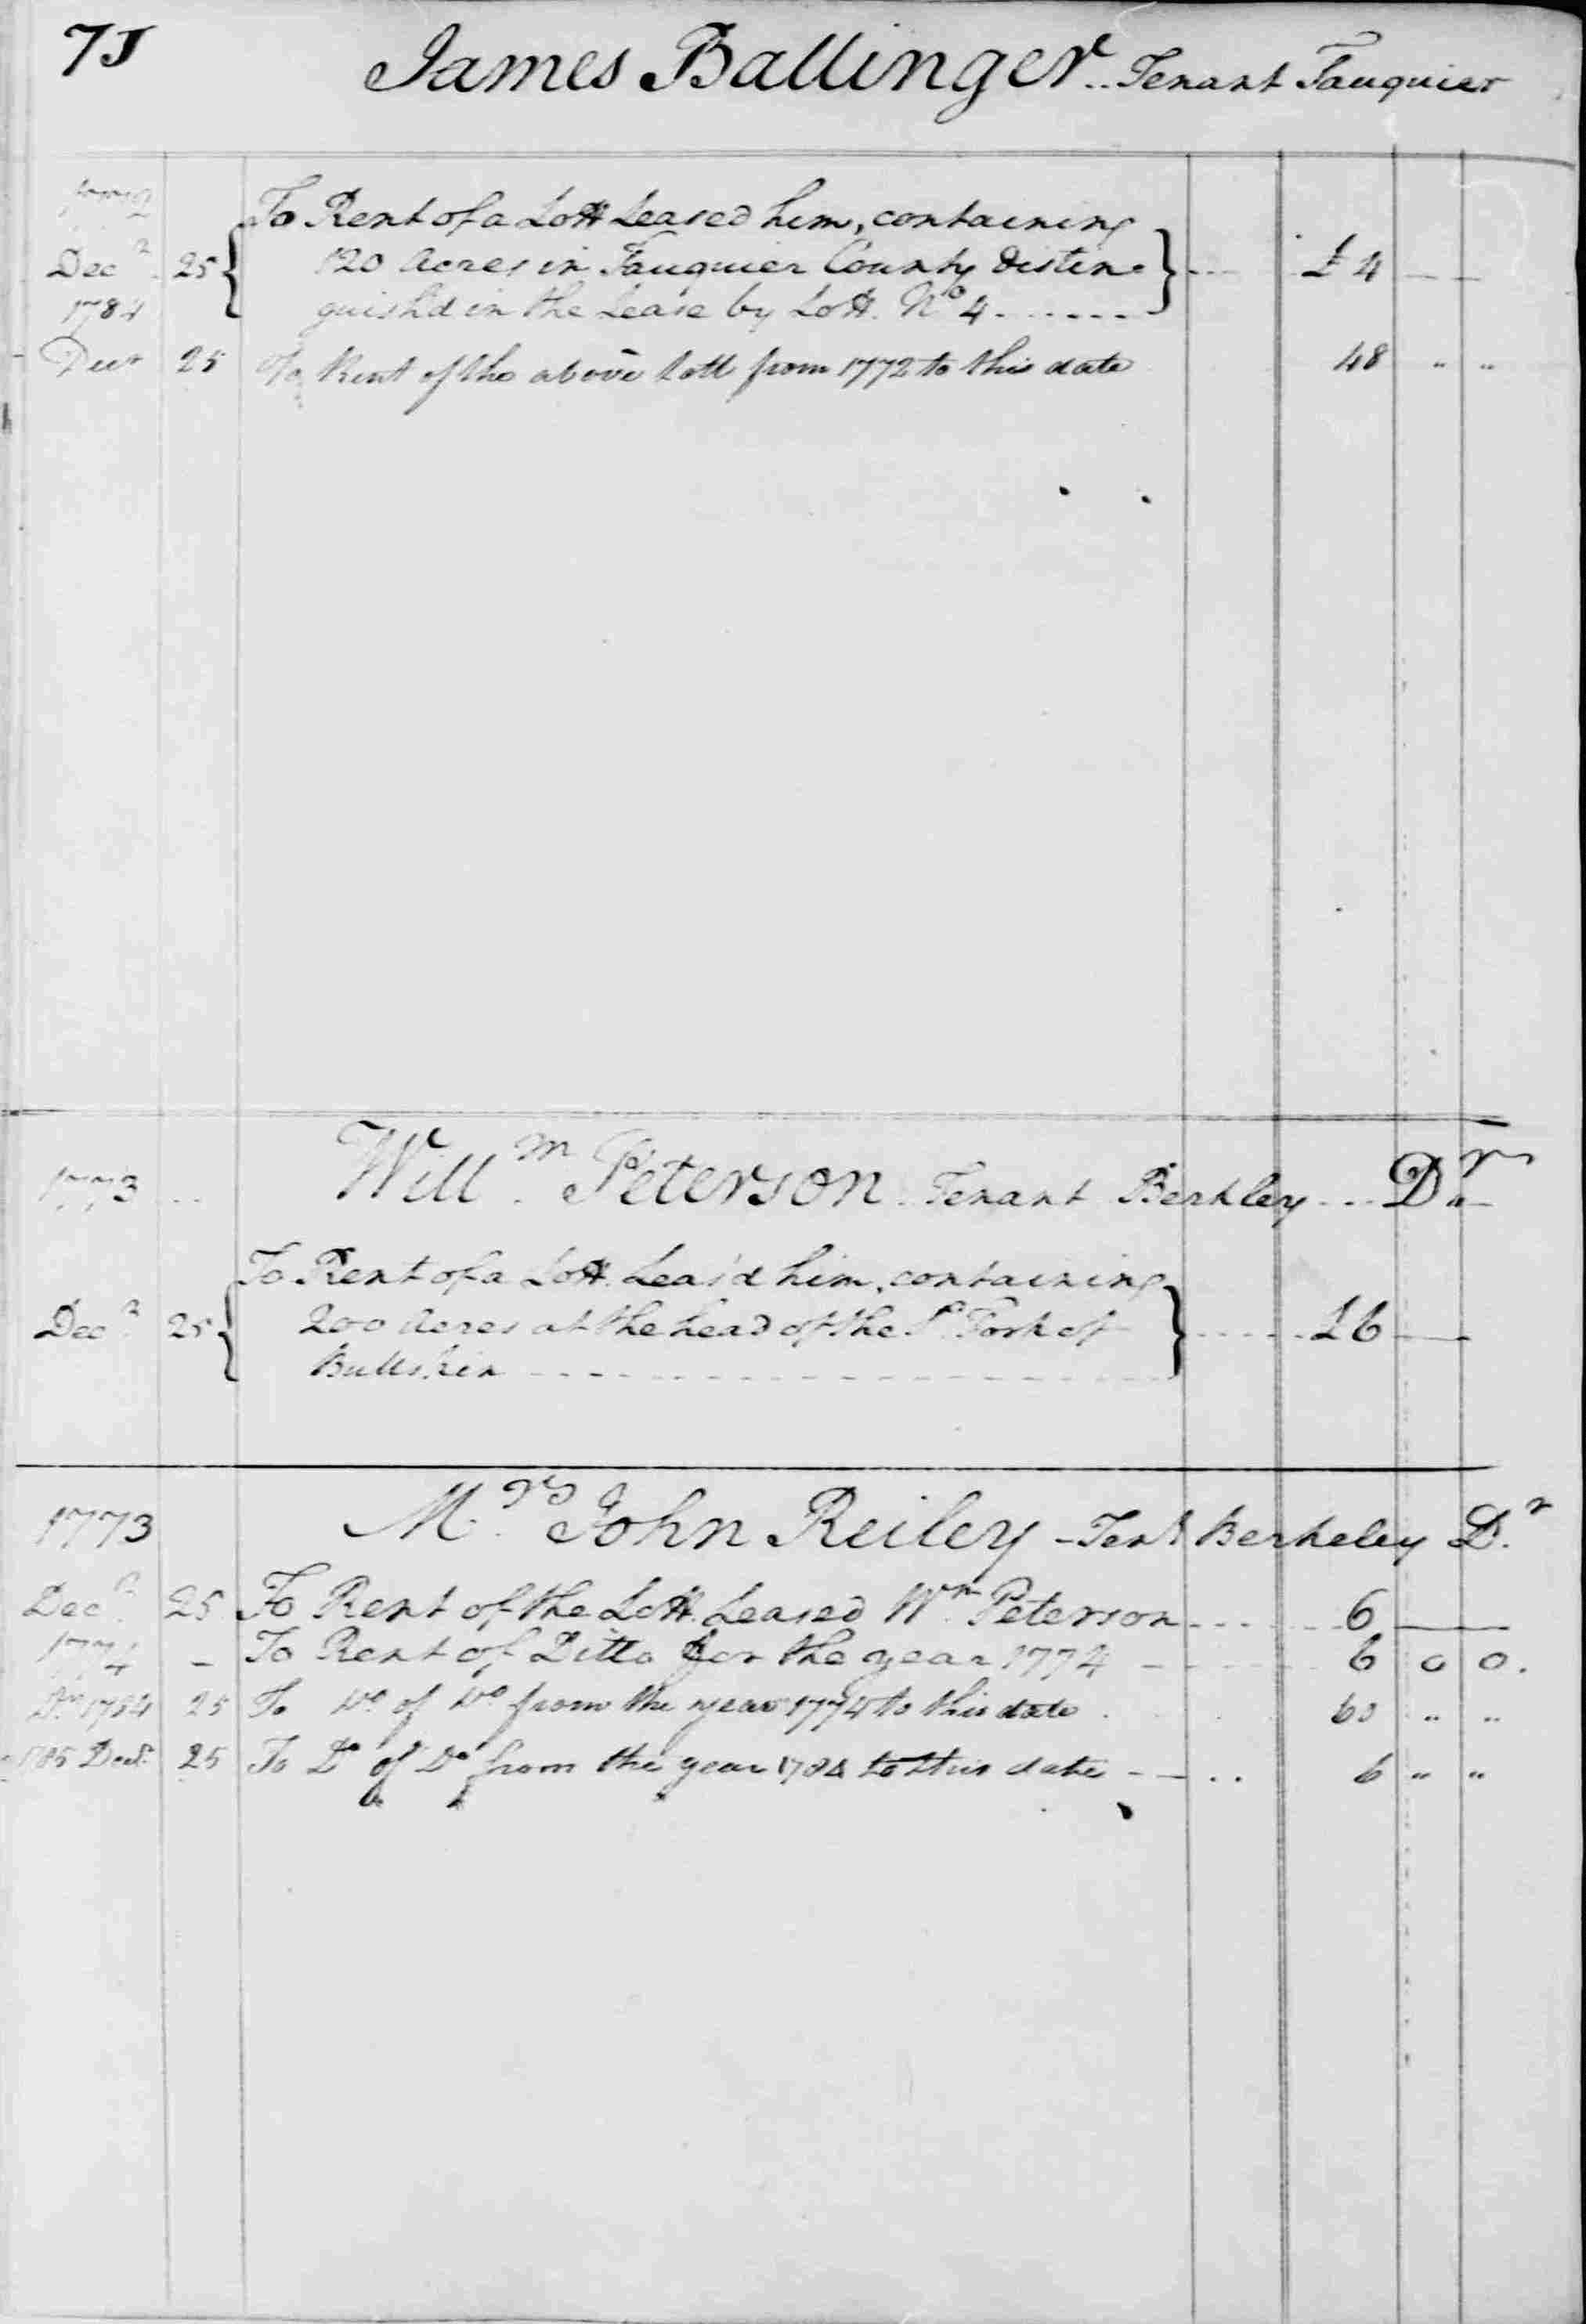 75 James Ballinger.. Tenant Fauquier
1772
To Rent of a Lott Leased him, containing
Decr. 25 120 Acres in Fauquier County Distin- £4
1784 guish'd in the Lease by Lott. No 4
Decr 25 To Rent of the above Lott from 1772 to this date 48 " "
1773 .. Willm. Peterson. Tenant Berkley ... Dr.
To Rent of a Lott. Leas'd him, containing
Decr. 25 200 Acres at the head of the So. Fork of £6
Bullskin
1773 Mrs. John Reiley - Tent Berkeley Dr.
Decr. 25 To Rent of the Lott. Leased Wm Peterson 6
1774 - To Rent of Ditto for the year 1774 6 0 0.
Dr. 1784 25 To Do of Do from the year 1774 to this date 60 " "
1785 Decr. 25 To Do of Do from the year 1784 to this date 6 " "